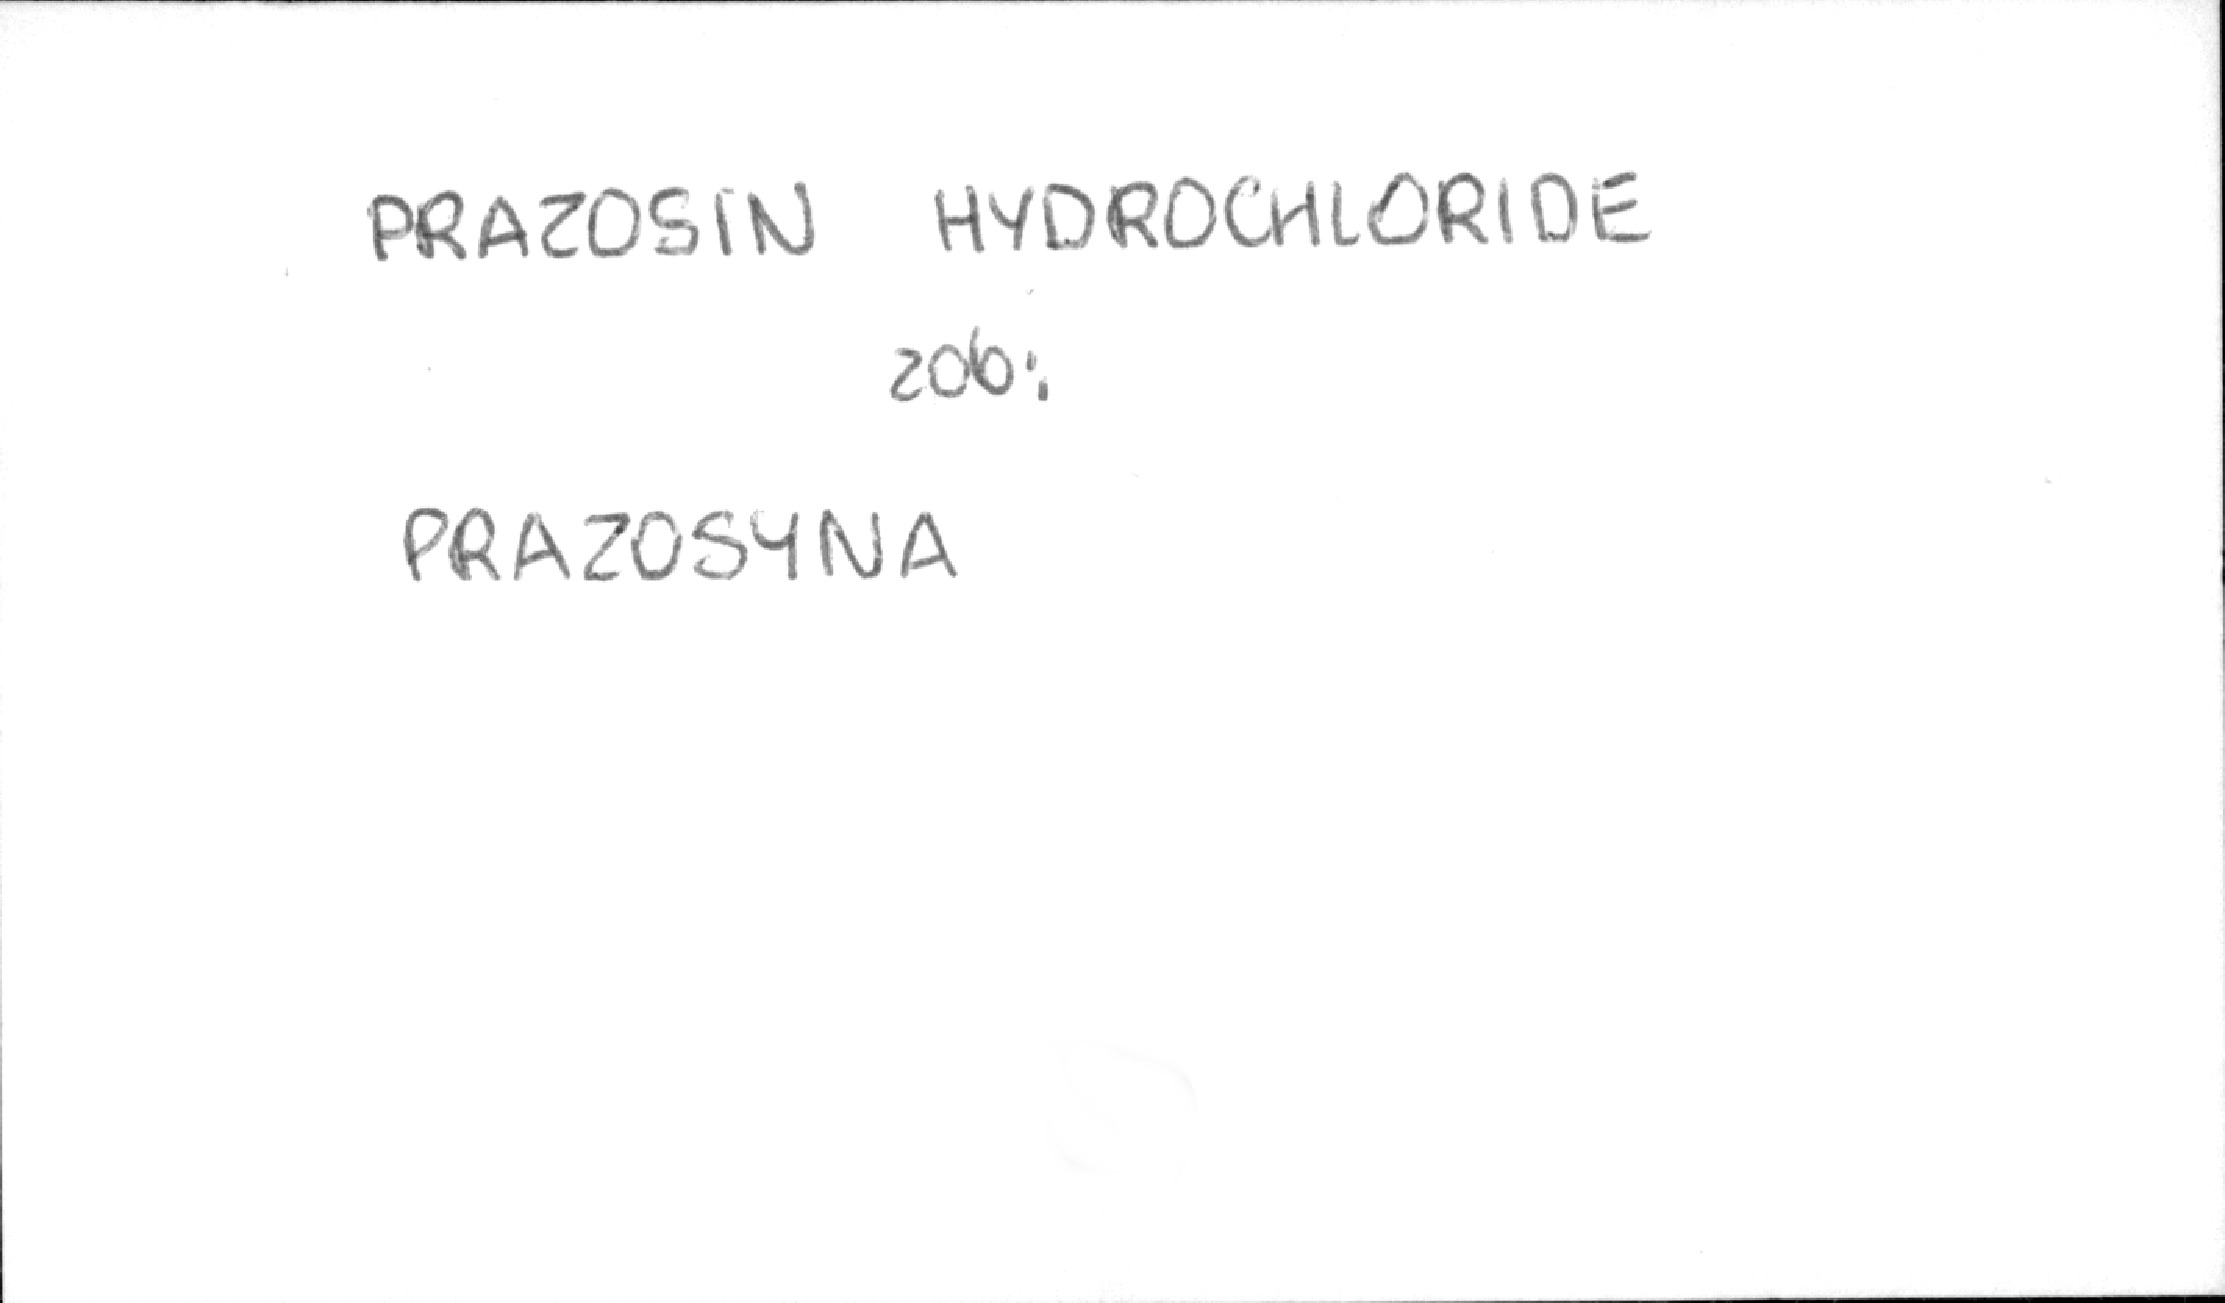 PRAZOSIN HYDROCHLORIDE
zob:
PRAZOSYNA